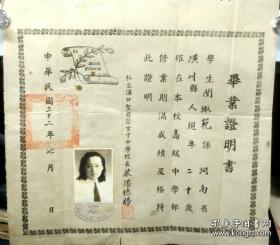 畢業證明書
學生蘭淑範係河南省
潢川縣人現年二十歲
確在本校高級中學部
修業期滿成績及格特
此證明
私立漢口聖若瑟女子中學校長
中華民國三十六年七月　日
孔夫子旧书网